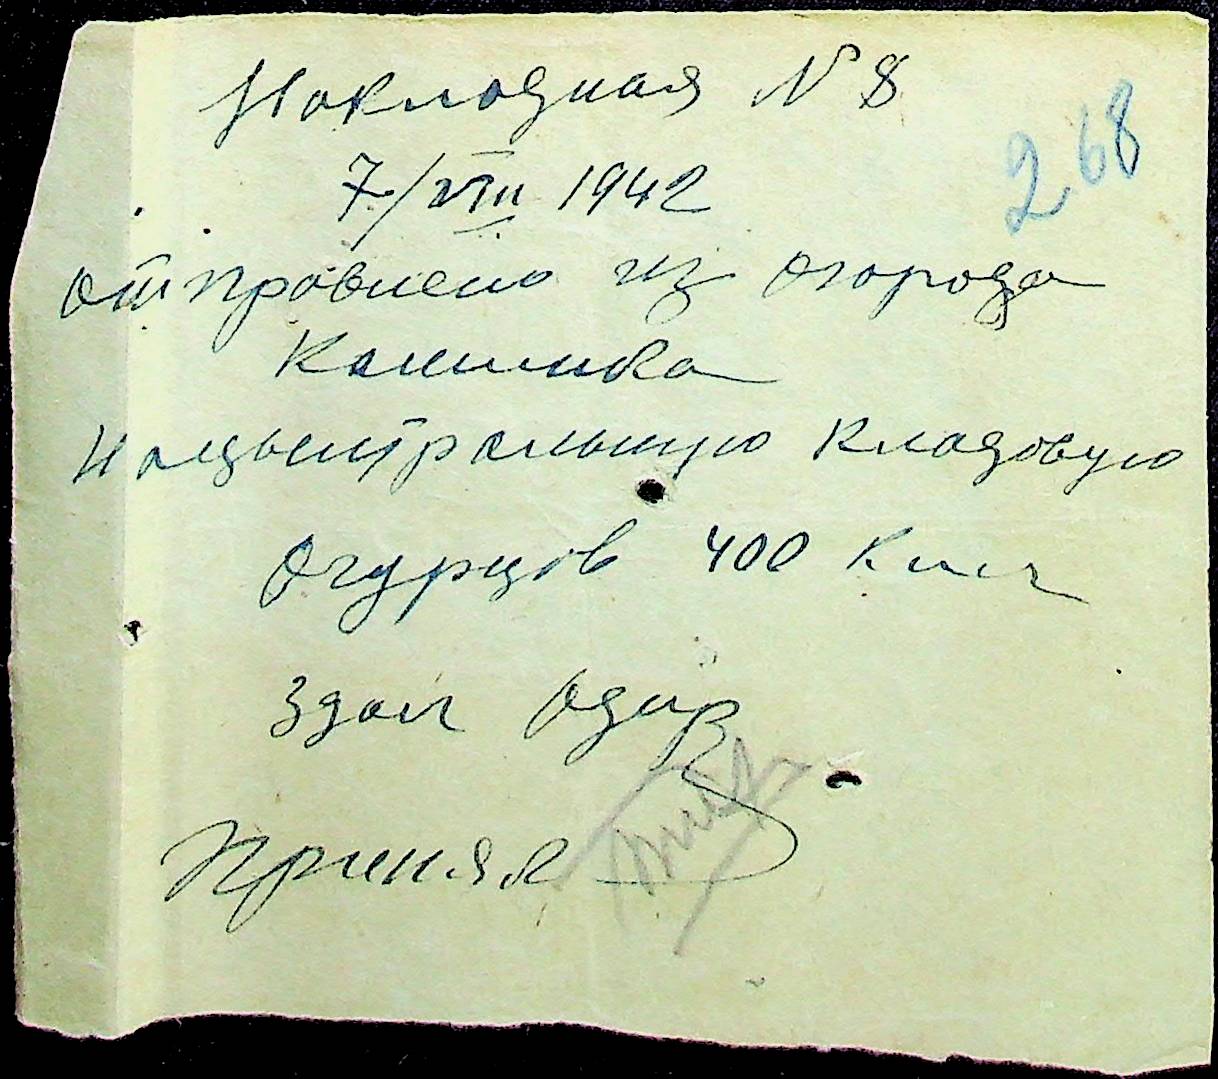 Накладная N 8
268
7/VIII 1942
отправлено из огорода
Калиника
нацьентральную кладовую
Огурцов 400 Килг
Здал
Принял